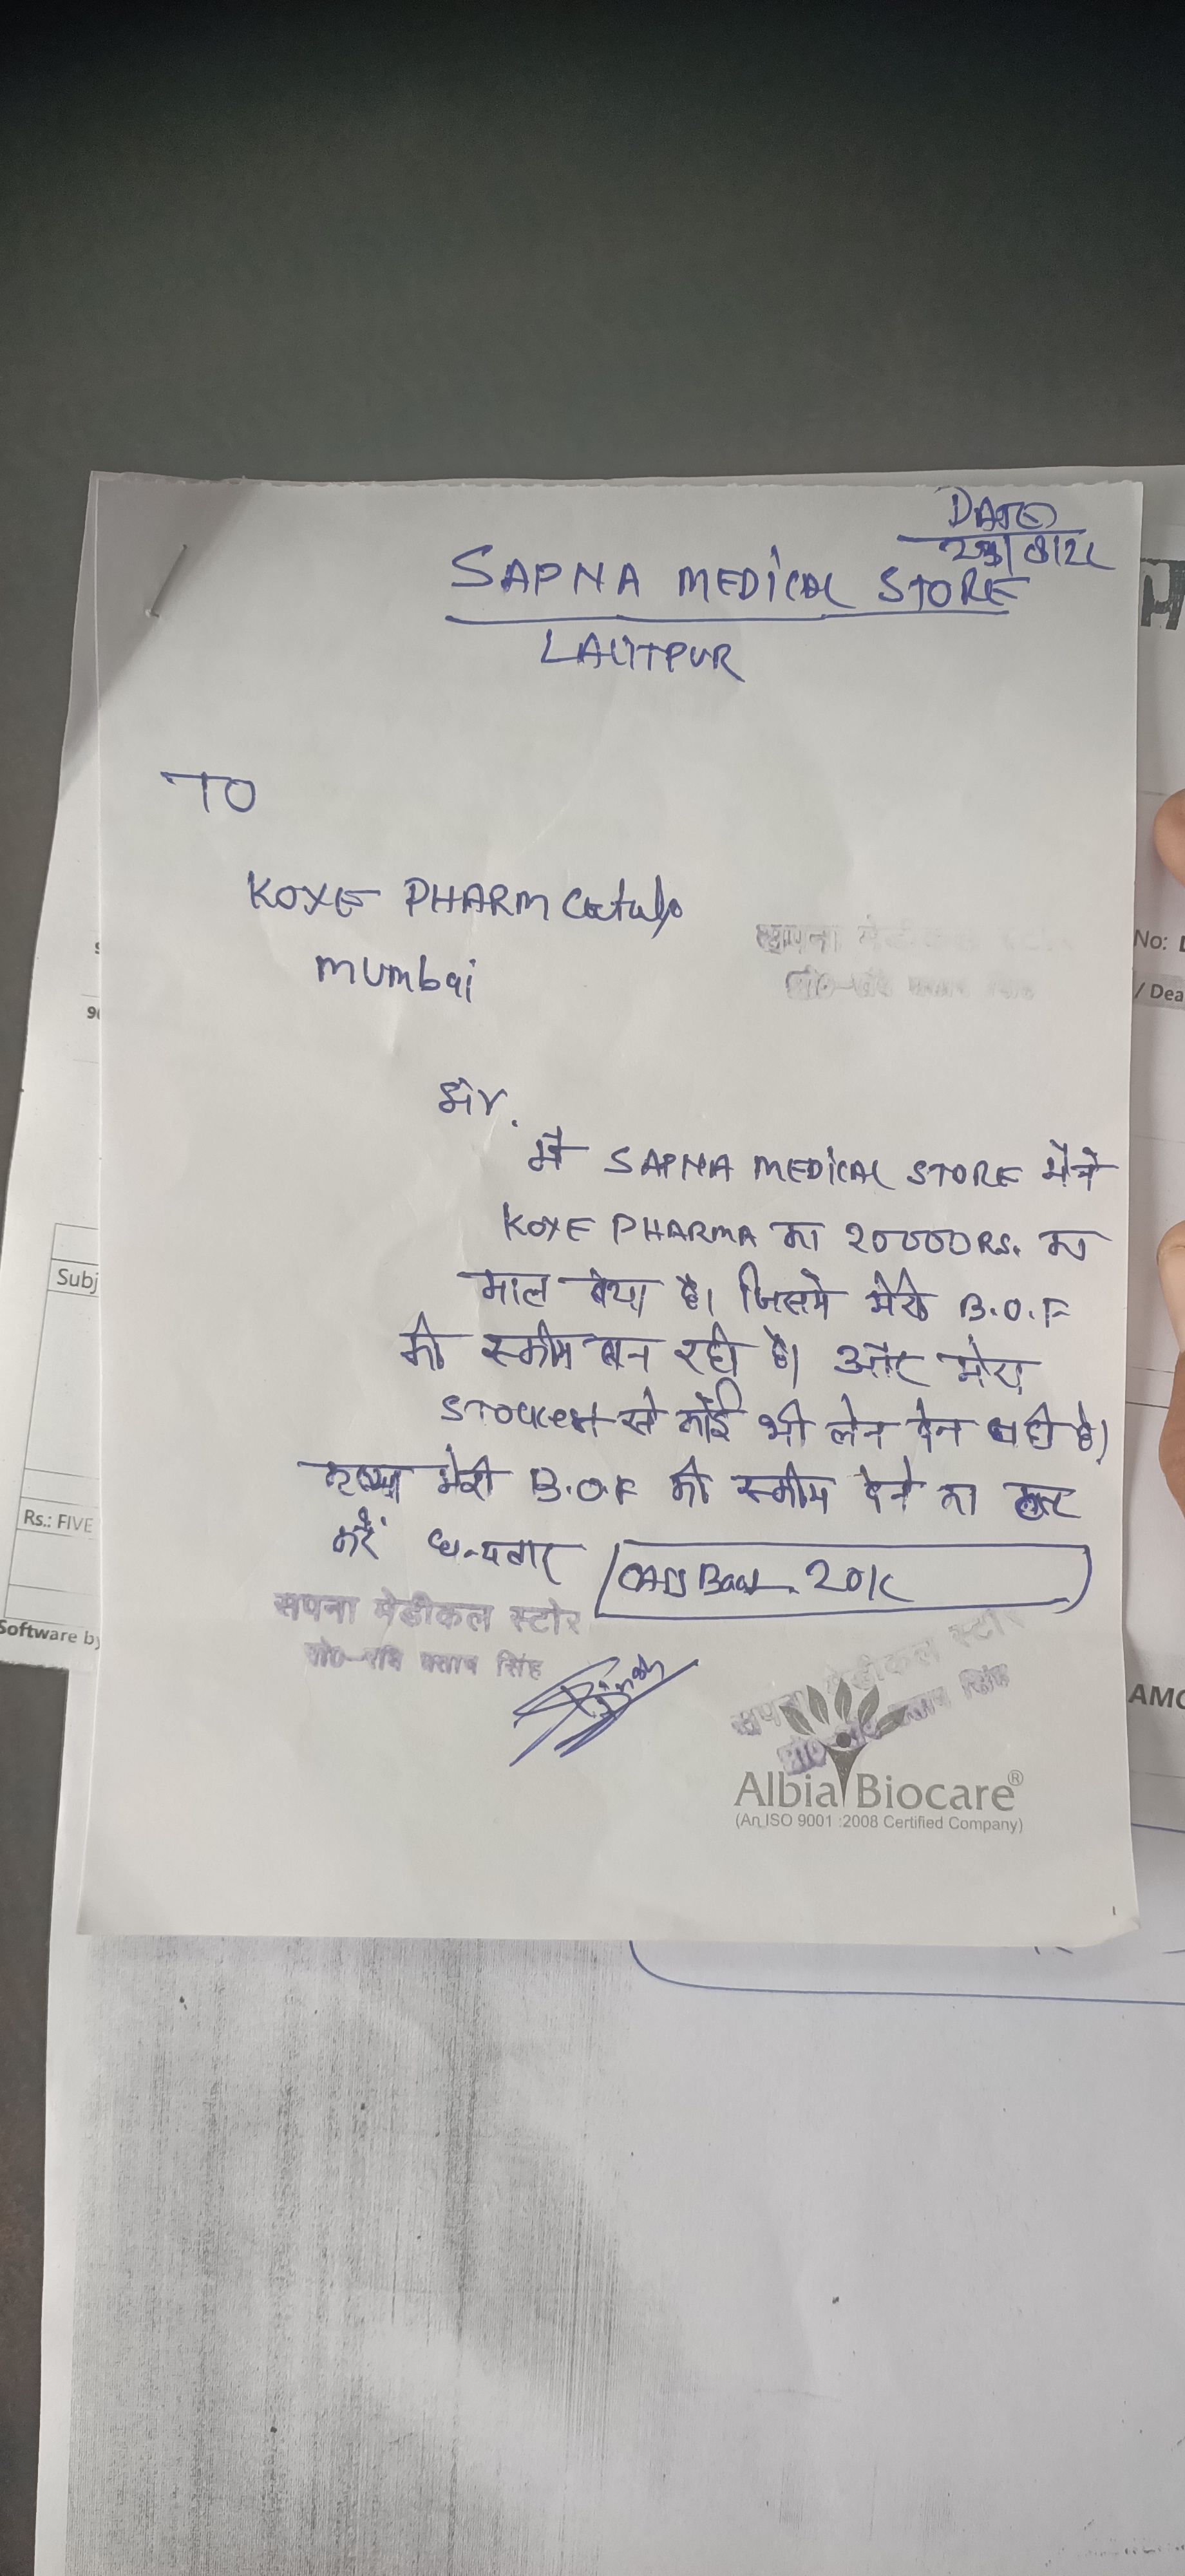 DATE
SAPNA MEDICAL STORE
LALITPUR
TO
KOXE PHARMCeutulp
mumbai
सपना मेडीकल स्टोर
सर.
मै SAPNA MEDICAL STORE मैने
KOXE PHARMA का 20000RS. का
माल बेचा है। जिसमे मेरी B.O.F
की स्कीम बन रही है। और मेरा
से कोई भी लेन देन नही है।
कृप्या मेरी B.O.F की स्कीम देने का
करें धन्यवाद
सपना मेडीकल स्टोर
प्रो०-रवि प्रताप सिंह
सपना मेडीकल स्टोर
प्रो०-रवि प्रताप सिंह
Albia Biocare®
(An ISO 9001 :2008 Certified Company)
No:
/ Dea
Subj
Rs.: FIVE
Software by
AMO